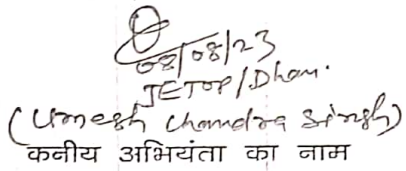 08/08/23
JETOP/Dhan.
(Umesh Chandra Singh)
कनीय अभियंता का नाम